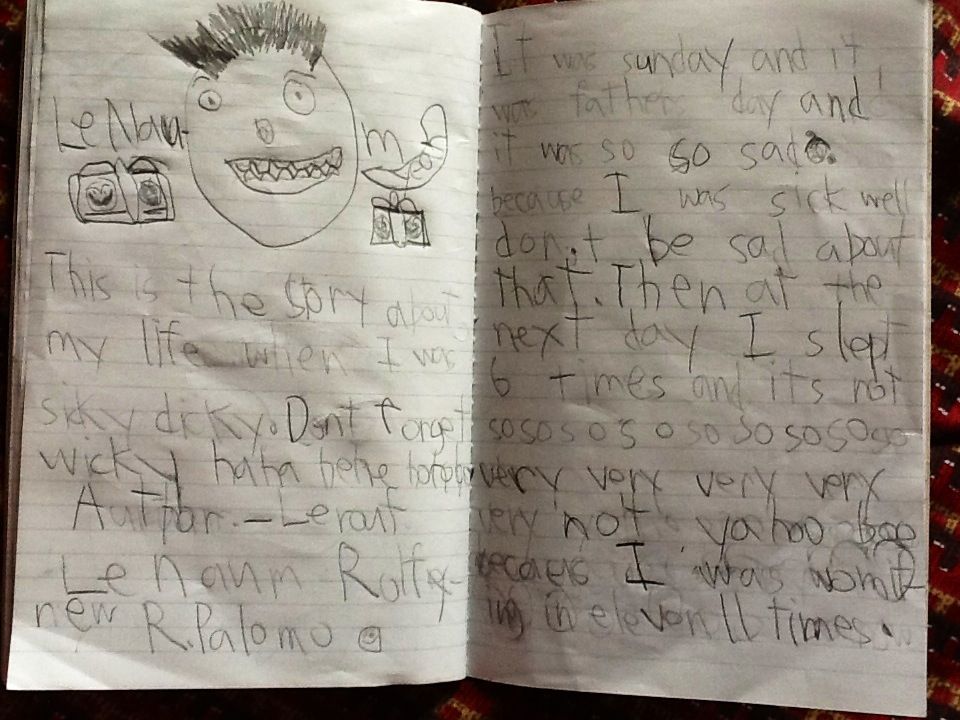 LeNau-
m
This is the story about
my life when I was
sicky dicky. Dont forget
wicky haha hehe
Le Naum
new R.Palomo
It was sunday and it
was father day and
it was so so sad.
because I was sick well
don't be sad about
that. Then at the
next day I slept
6 times and its not
so so s o s o so so so so so
very very very very
very not yahoo boo
I was womit
ing in eleven 11 times.